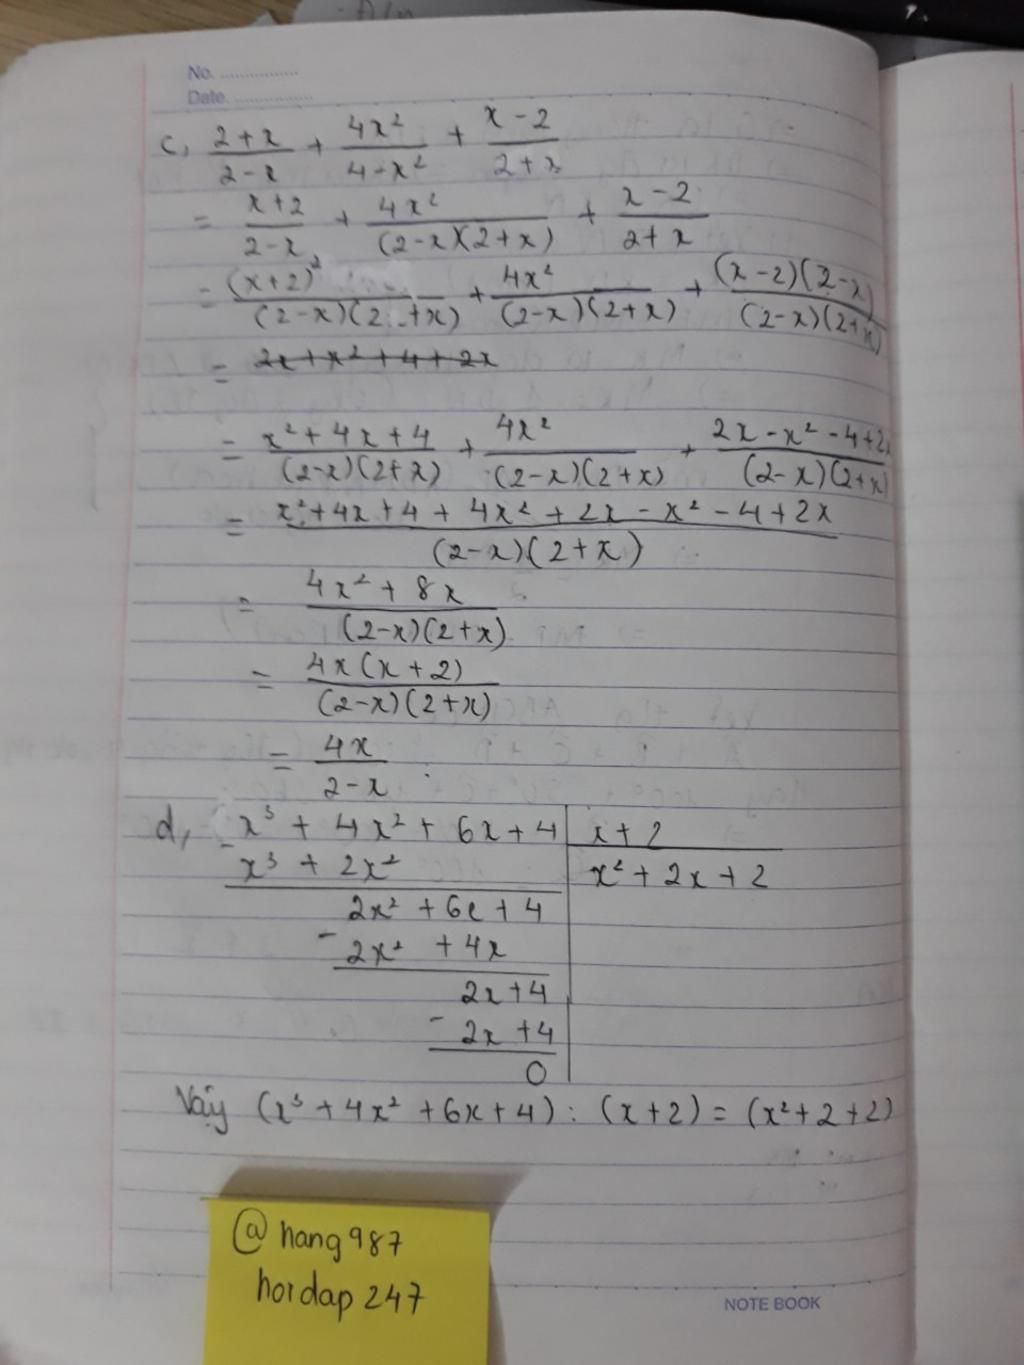 No.
Date.
c, \frac{2+x}{2-x} + \frac{4x²}{4-x²} + \frac{x-2}{2+x}
= \frac{x+2}{2-x} + \frac{4x²}{(2-x)(2+x)} + \frac{x-2}{2+x}
= \frac{(x+2)²}{(2-x)(2+x)} + \frac{4x²}{(2-x)(2+x)} + \frac{(x-2)(2-x)}{(2-x)(2+x)}
= 2x+x²+4+2x
= \frac{x²+4x+4}{(2-x)(2+x)} + \frac{4x²}{(2-x)(2+x)} + \frac{2x-x²-4+2x}{(2-x)(2+x)}
= \frac{x²+4x+4+4x²+2x-x²-4+2x}{(2-x)(2+x)}
= \frac{4x²+8x}{(2-x)(2+x)}
= \frac{4x(x+2)}{(2-x)(2+x)}
= \frac{4x}{2-x}.
d, - x³ + 4x² + 6x + 4 | x + 2
x³ + 2x² | x² + 2x + 2
2x² + 6x + 4
- 2x² + 4x
2x + 4
- 2x + 4
0
Vậy (x³ + 4x² + 6x + 4) : (x+2) = (x²+2+2)
@hang987
hoidap247
NOTE BOOK